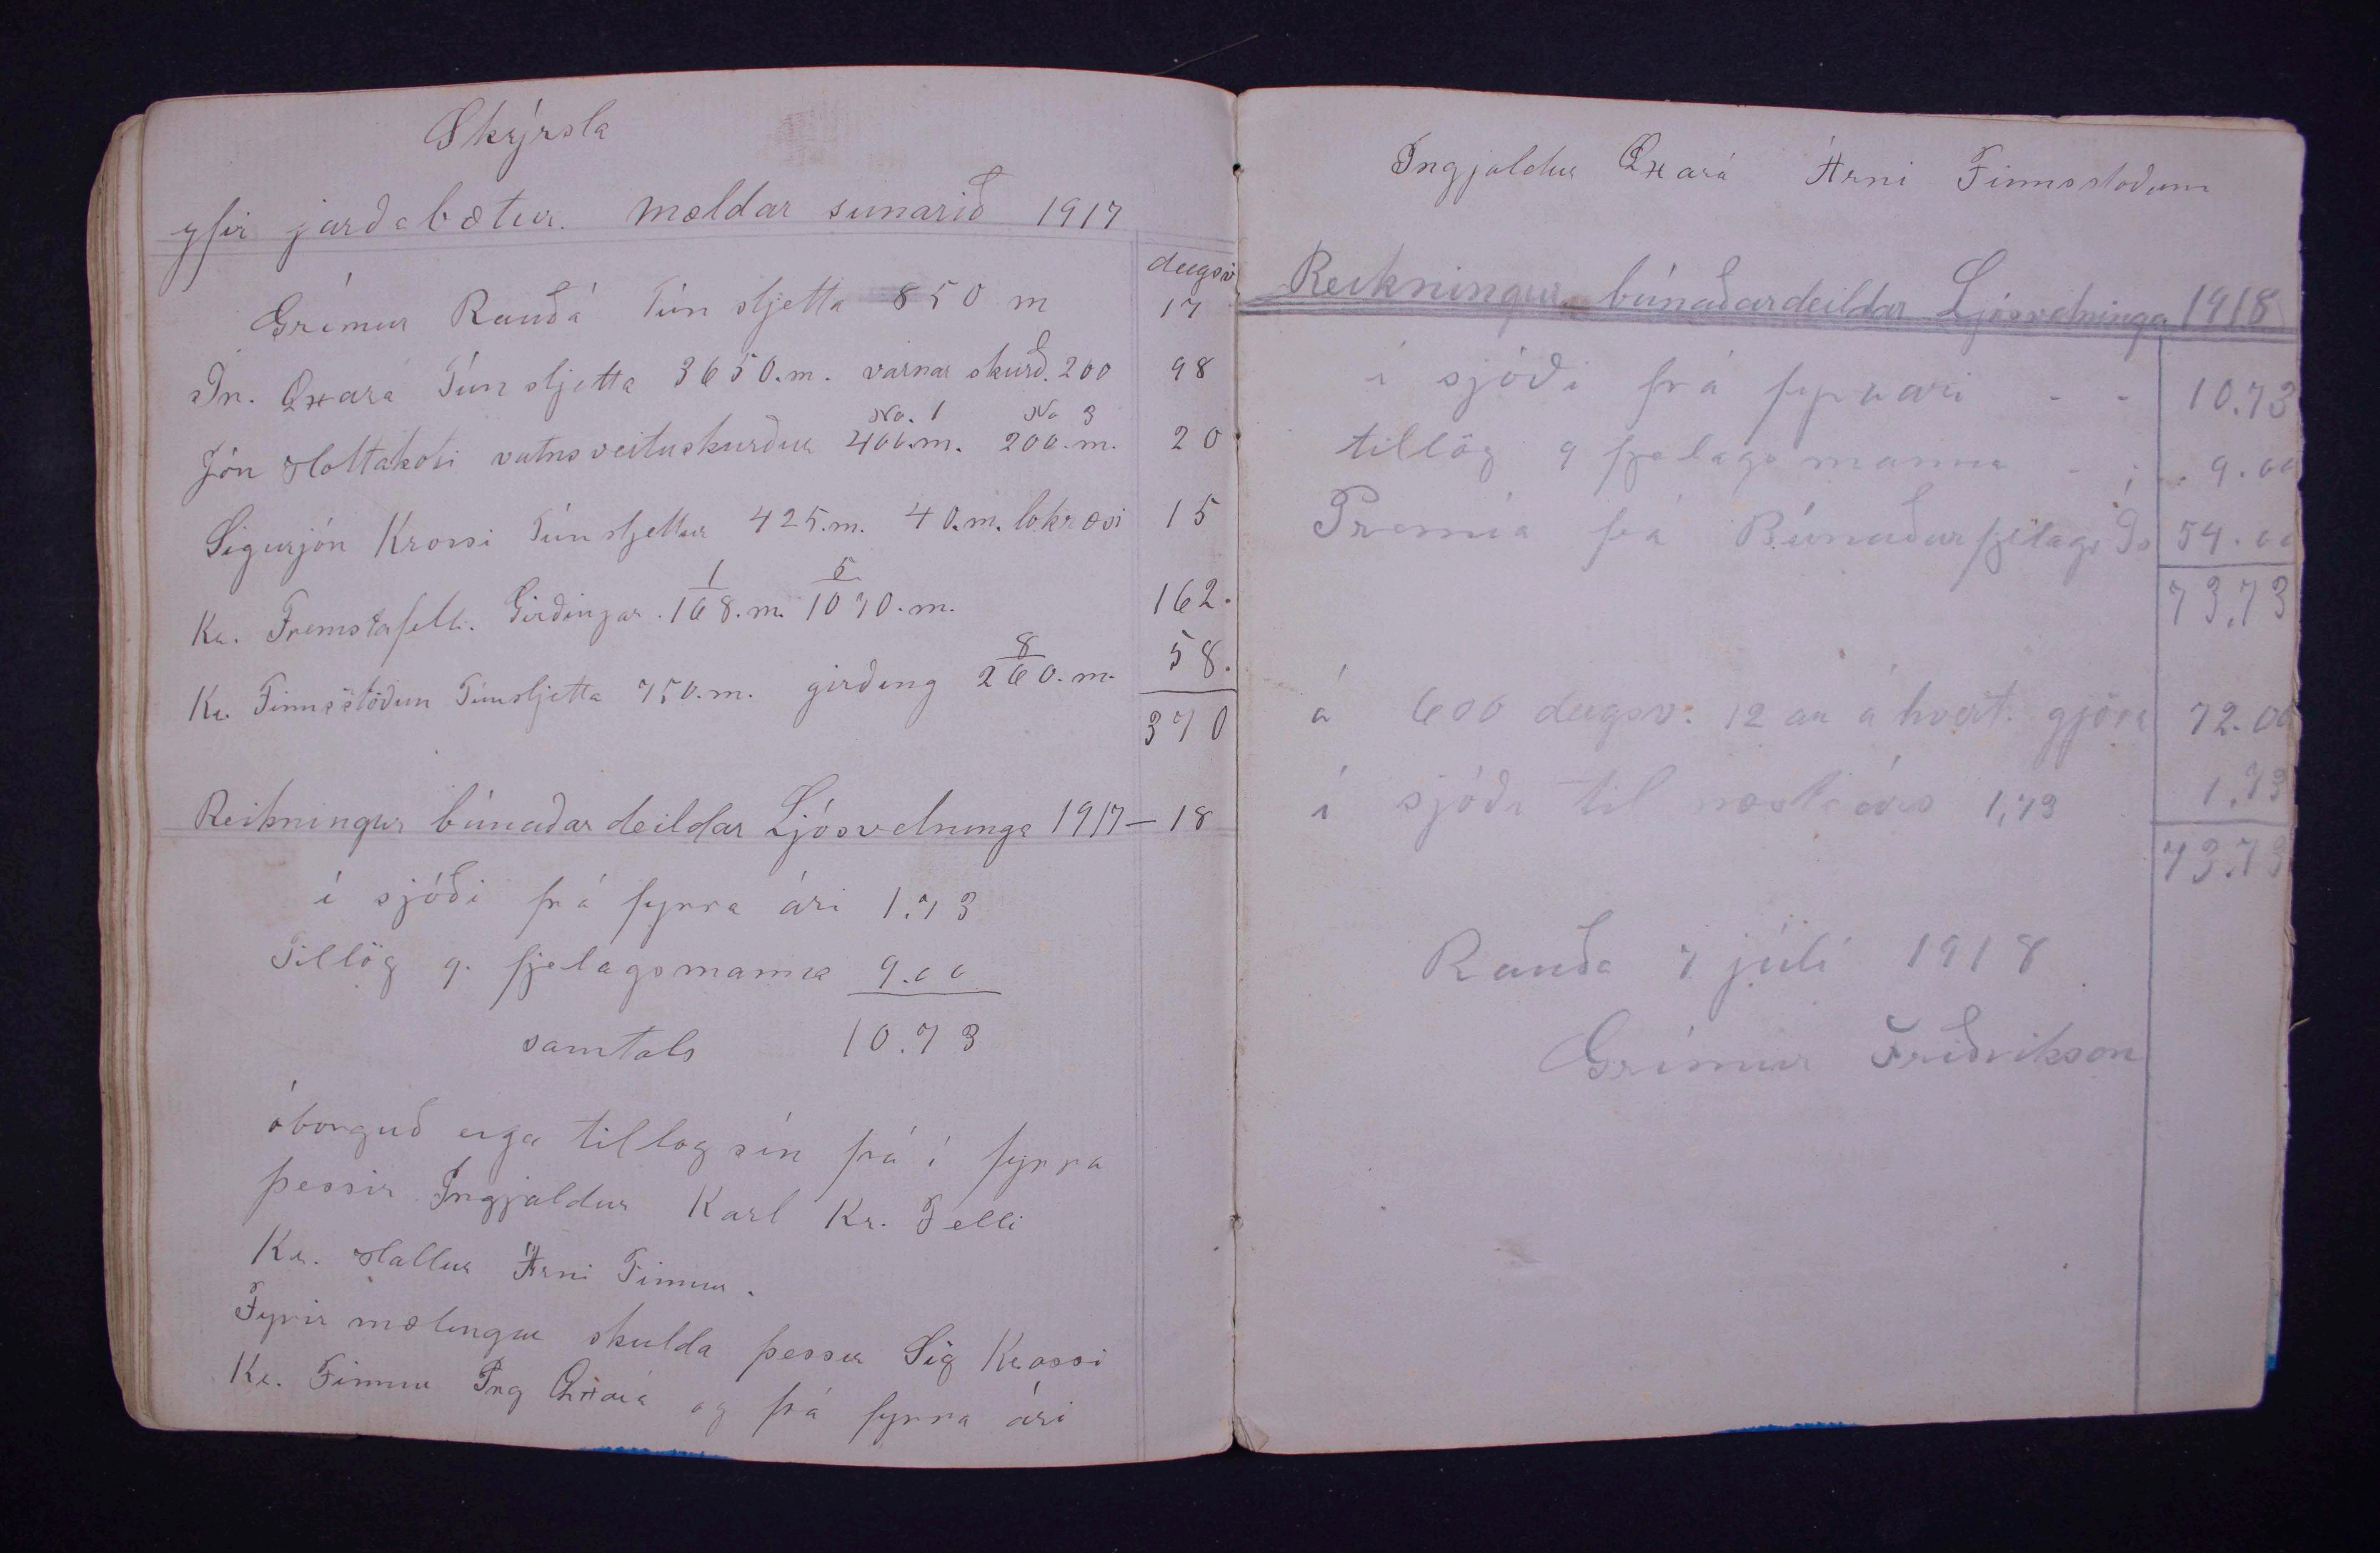 Skýrsla
yfir jarðabætur. mældar sumarið 1917
dagsv
Grímur Rauðá Tún sljetta 850 m 17
In. Öxará Túnsljetta 3650.m. varnar skurð. 200 98
No. 1 No 3
Jón Holtakoti vatnsveituskurður 400.m. 200.m. 20
Sigurjón Krossi Túnsljettur 425.m. 40.m. lokræsi 15
1 5
Kr. Fremstafelli. Girðingar. 168.m. 1070.m. 162.
8
Kr. Finnsstöðum Túnsljetta 750.m. girðing 260.m. 58.
370
Reikningur búnaðar deildar Ljósvetninga 1917–18
í sjóði frá fyrra ári 1.73
Tillög 9. fjelagsmanna 9.00
samtals 10.73
óborguð eiga tillög sín frá í fyrra
þessir Ingjaldur Karl Kr. Felli
Kr. Hallur Árni Finnur.
Fyrir mælingu skulda þessir Sig Krossi
Kr. Finnu Ing Öxará og frá fyrra ári
Ingjaldur Öxará Árni Finnsstoðum
Reikningur búnaðardeildar Ljósvetninga 1918
í sjóði frá fyrra ári - - 10.73
tillög 9 fjelags manna - - 9.00
Premía frá Búnaðarfjelagi Ís 54.00
73.73
á 600 dagsv. 12 au á hvert. gjöra 72.00
í sjóði til næsta árs 1,73 1.73
73.73
Rauðá 7 júlí 1918
Grímur Friðrikson